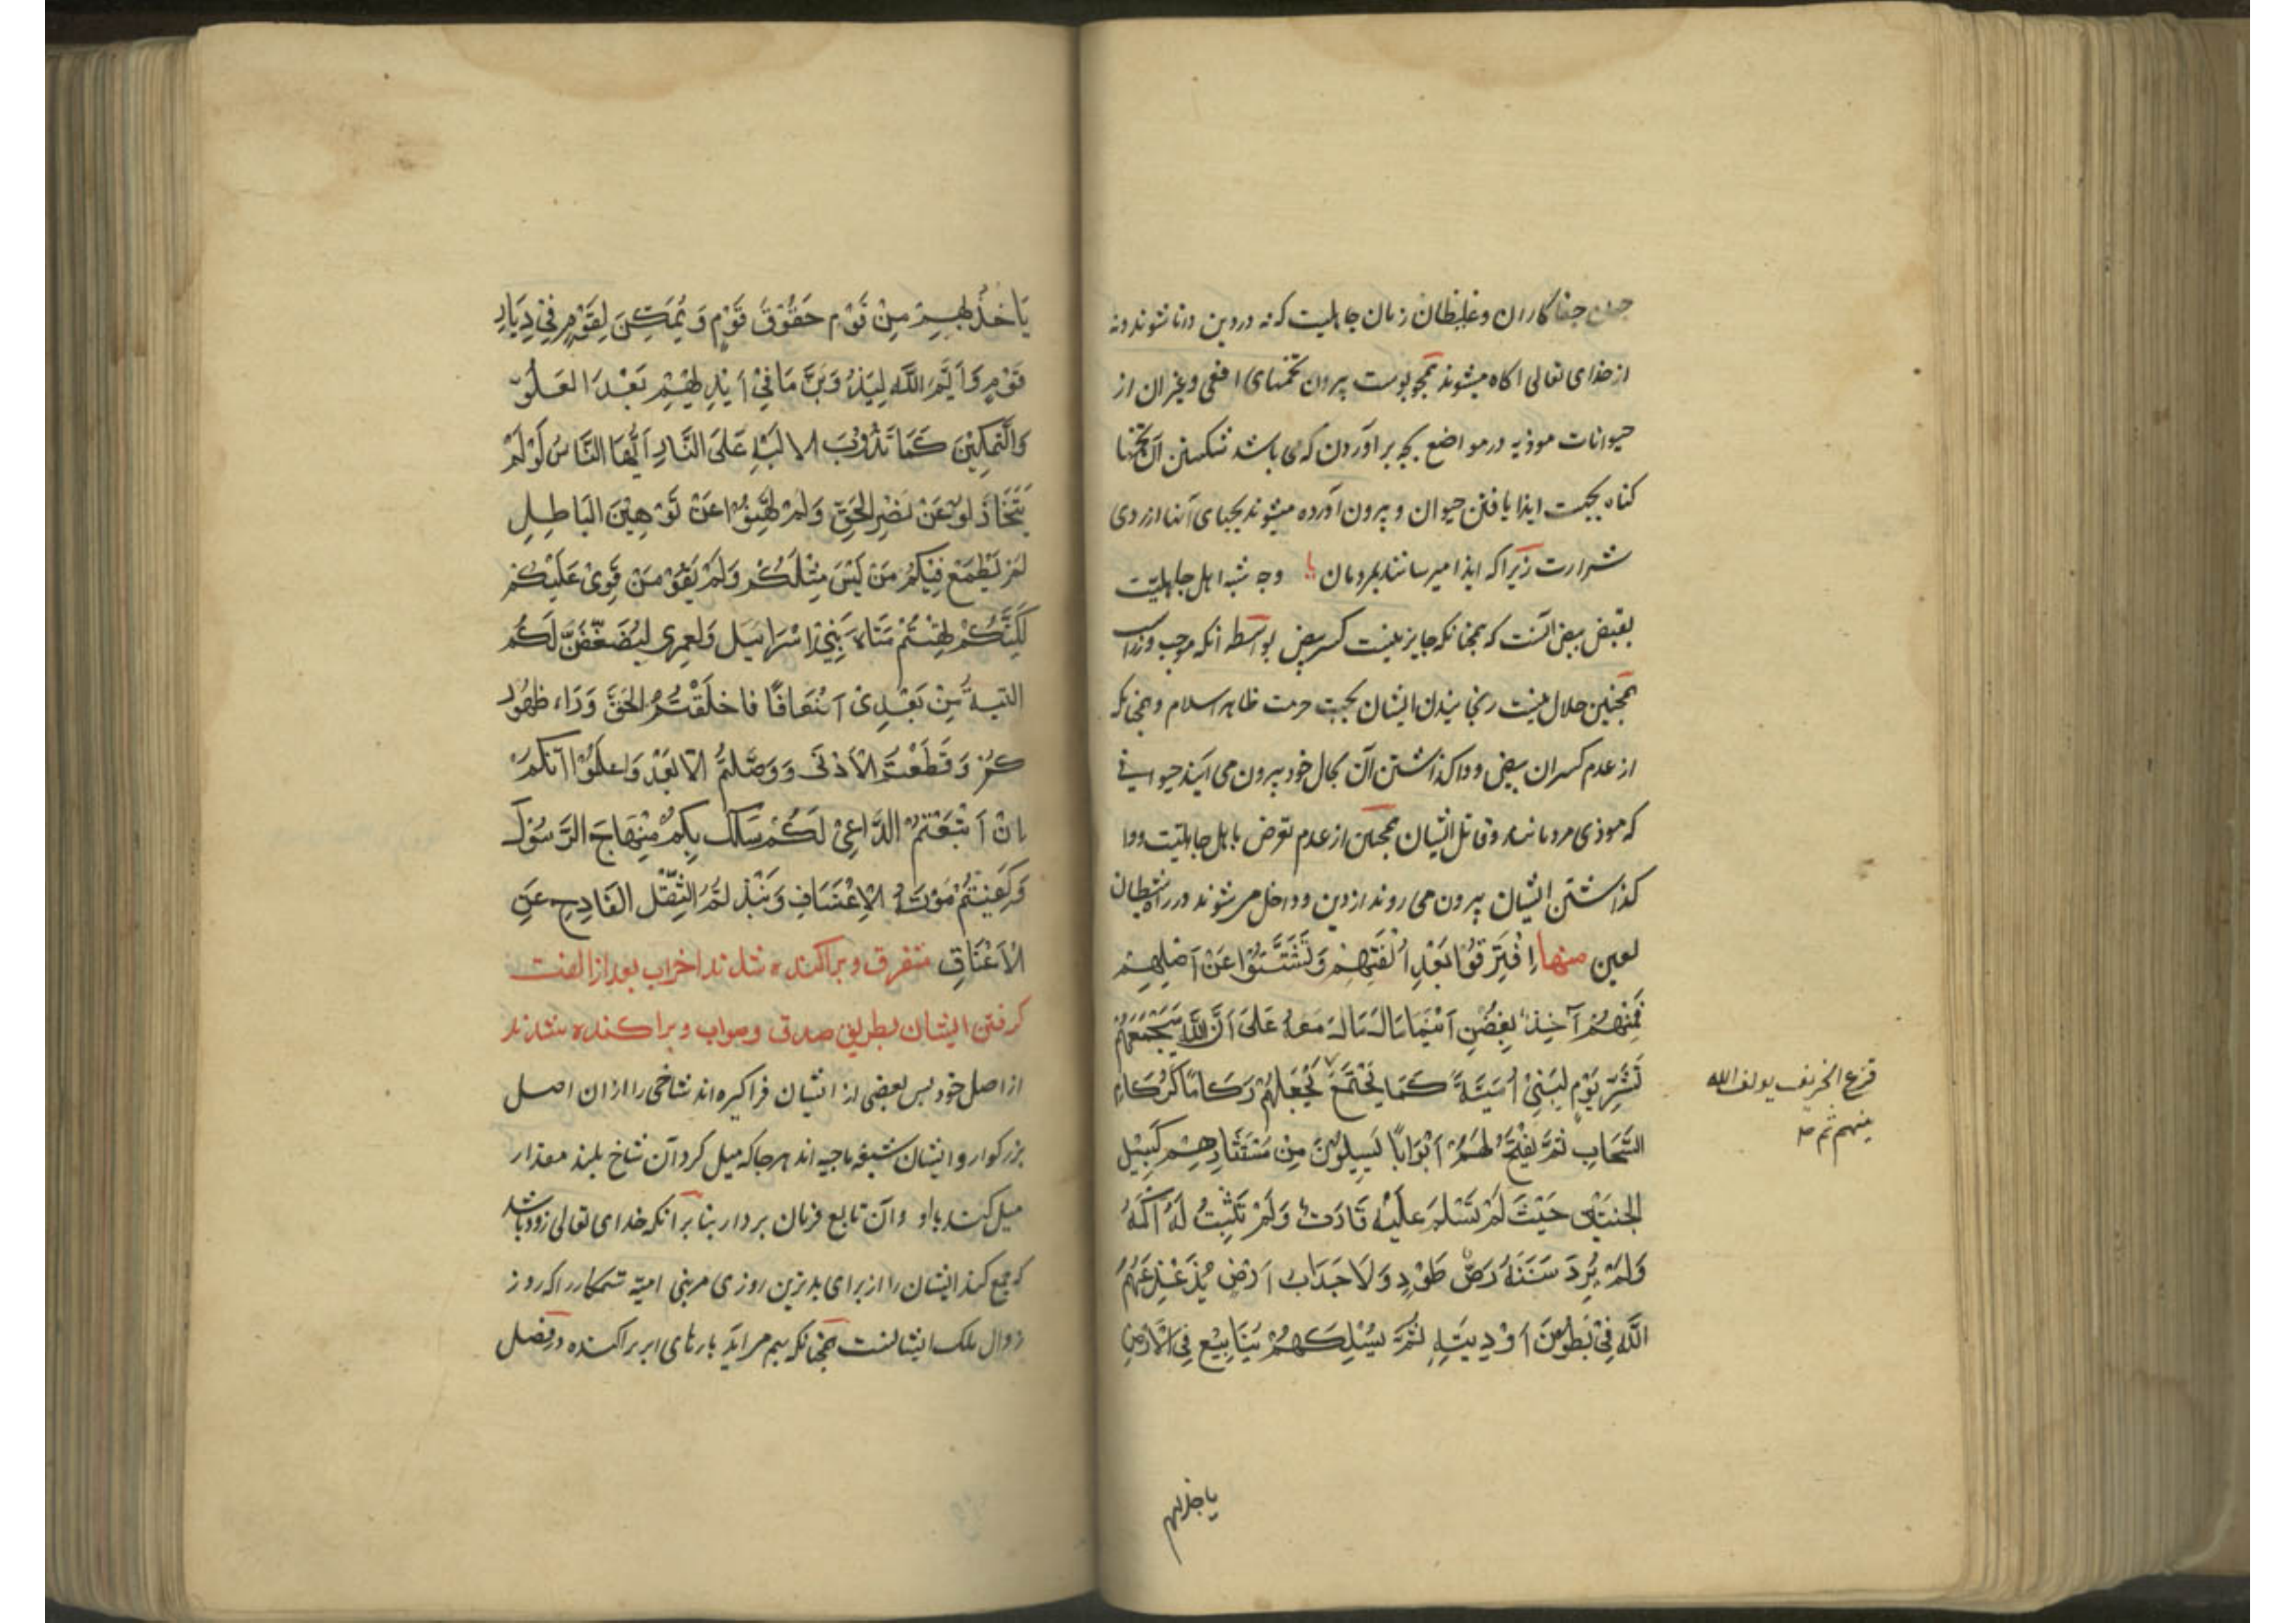 چون جفاکاران و غلیظان زمان جاهلیت که نه در دین دانا شوند و نه
از خدای تعالی اکاه میشوند همچو پوست بیرون تخمهای افعی و غیر ان از
حیوانات موذیه در مواضع بچه براوردن که می باشد شکستن آن تخمها
کناه بجهت ایذا یافتن حیوان و بیرون آورده میشوند بچهای آنها از روی
شرارت زیراکه ایذا میرسانند بمردمان یا وجه شبه اهل جاهلیت
بقیض بیض انست که همچنانکه جایز نیست کسر بیض بواسطه انکه موجب وزراست
همچنین حلال نیست رنجانیدن ایشان بجهت حرمت ظاهر اسلام و همچنانکه
از عدم کسران بیض و واکذاشتن آن بحال خود بیرون می ایند حیوانی
که موذی مردمانند و قاتل ایشان همچنین از عدم تعرض باهل جاهلیت و وا
کذاشتن ایشان بیرون می روند از دین و داخل می شوند در راه شیطان
لعین منها اِفْتَرَقُوْا بَعْدِ اُلْفَتِهِمْ وَتَشَتَّتُوْا عَنْ اَصْلِهِمْ
فَمِنْهُمْ آخِذٌ بِغُصْنٍ اَيْنَمَا مَالَ مَالَ مَعَهُ عَلَى اَنَّ اللَّهَ سَيَجْمَعُهُمْ
لِشَرِّ يَوْمٍ لِبَنِيْ اُمَيَّةَ كَمَا يَجْتَمِعُ يَجْعَلُهُمْ رُكَامًا كَرُكَامِ
قزع الخريف يولف الله
بينهم ثم
السَّحَابِ ثُمَّ يَفْتَحُ لَهُمْ اَبْوَابًا يَسِيلُوْنَ مِنْ مُسْتَثَارِهِمْ كَسَيْلِ
الجَنَّتَيْنِ حَيْثُ لَمْ تَسْلَمْ عَلَيْهِ قَارَةٌ وَلَمْ تَثْبُتْ لَهُ اَكَمَةٌ
وَلَمْ يَرُدَّ سَنَنَهُ رَصُّ طَوْدٍ وَلَا حِدَابُ اَرْضٍ يُذَعْذِعُهُمُ
اللَّهُ فِيْ بُطُوْنِ اَوْدِيَتِهِ ثُمَّ يَسْلُكُهُمْ يَنَابِيْعَ فِي الْاَرْضِ
یاخذ بهم
يَاْخُذُ بِهِمْ مِنْ قَوْمٍ حُقُوْقَ قَوْمٍ وَيُمَكِّنُ لِقَوْمٍ فِيْ دِيَارِ
قَوْمٍ وَاَيْمُ اللَّهِ لِيَذُوْبَنَّ مَا فِيْ اَيْدِيْهِمْ بَعْدَ العُلُوِّ
وَالتَّمْكِيْنِ كَمَا تَذُوْبُ الْالْيَةُ عَلَى النَّارِ اَيُّهَا النَّاسُ لَوْ لَمْ
يَتَخَاذَلُوْا عَنْ نَصْرِ الحَقِّ وَلَمْ تَهِنُوْا عَنْ تَوْهِيْنِ البَاطِلِ
لَمْ يَطْمَعْ فِيْكُمْ مَنْ لَيْسَ مِثْلَكُمْ وَلَمْ يَقْوَ مَنْ قَوِىَ عَلَيْكُمْ
لَكِنَّكُمْ تِهْتُمْ مَتَاهَ بَنِيْ اِسْرَائِيلَ وَلَعَمْرِى لَيُضَعَّفَنَّ لَكُمُ
التيهُ مِنْ بَعْدِىْ اَضْعَافًا فا خَلَّفْتُمُ الحَقَّ وَرَاءَ ظُهُوْرِ
كُمْ وَقَطَعْتُمُ الْاَدْنَى وَوَصَلْتُمُ الْاَبْعَدَ وَاعْلَمُوْا اَنَّكُمْ
اِنْ اَتَّبَعْتُمُ الدَّاعِيَ لَكُمْ سَلَكَ بِكُمْ مِنْهَاجَ الرَّسُوْلِ
وَكُفِيْتُمْ مَؤنَةَ الْاِعْتِسَافِ وَنَبَذْتُمُ الثِّقْلَ الفَادِحَ عَنِ
الْاَعْنَاقِ متفرق و پراکنده شدند احزاب بعد از الفت
کرفتن ایشان بطریق صدق و صواب و پراکنده شدند
از اصل خود پس بعضی از ایشان فراکیره اند شاخی را ازان اصل
بزرکوار و ایشان شیعه ناجیه اند هرجا که میل کرد آن شاخ بلند مقدار
میل کنند با او و آن تابع فرمان بردار بنا بر انکه خدای تعالی زود باشد
که جمع کند ایشان را از برای بدترین روزی مر بنی امیه ستمکار را که روز
زوال ملک ایشانست همچنانکه بهم مراید بارهای ابر پراکنده در فصل